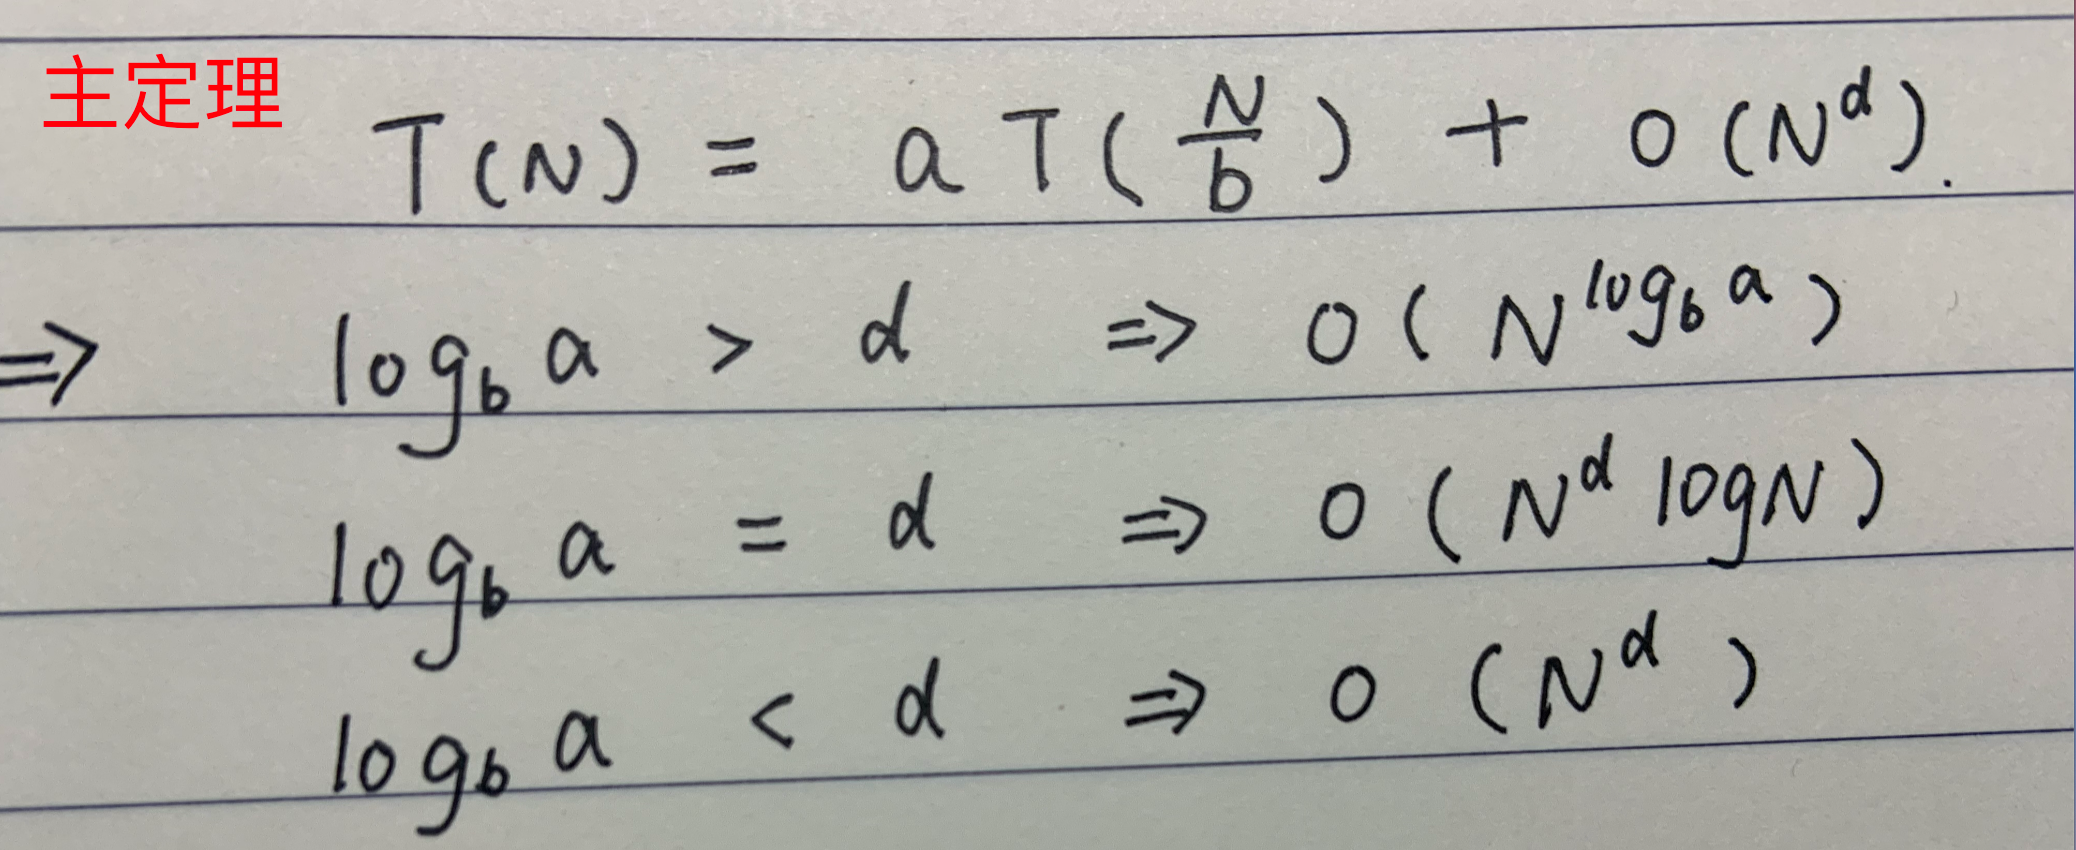 主定理
T(N) = a T(N/b) + O(N^d).
⇒ log_b a > d ⇒ O(N^{log_b a})
log_b a = d ⇒ O(N^d logN)
log_b a < d ⇒ O(N^d)